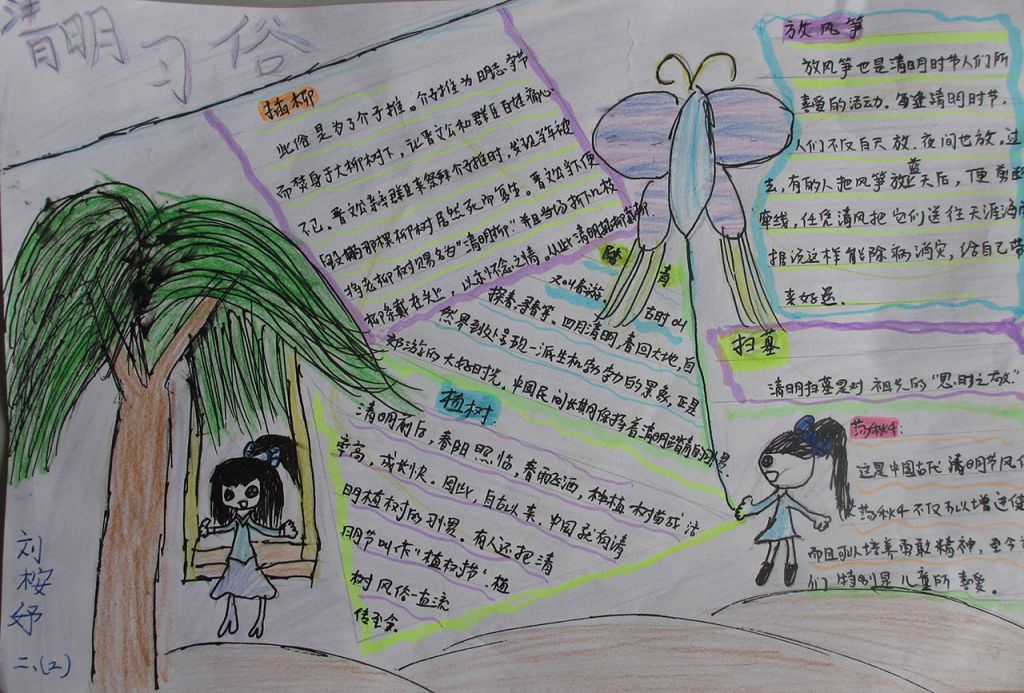 清明习俗
插柳
此俗是为了介子推。介子推为明志守节
而焚身于大柳树下，让晋文公和群臣百姓痛心
不已。晋文公亲率群臣来祭拜介子推时，发现当年被
那棵柳树居然死而复生。晋文公当下便
将老柳树赐名为"清明柳"，并且当场折下几枝
柳条戴在头上，以示怀念之情。从此
踏青
又叫春游。古时叫
探春，寻春等。四月清明，春回大地，自
然界到处呈现一派生机勃勃的景象，正是
郊游的大好时光。中国民间长期保持着清明踏青的习惯。
植树
清明前后，春阳照临，春雨飞洒，种植树苗成活
率高，成长快。因此，自古以来，中国就有清
明植树的习惯。有人还把清
明节叫作"植树节"。植
树风俗一直流
传至今。
放风筝
放风筝也是清明时节人们所
喜爱的活动。每逢清明时节，
人们不仅白天放，夜间也放。过
去，有的人把风筝放蓝天后，便剪断
牵线，任凭清风把它们送往天涯海
据说这样能除病消灾，给自己带
来好运。
扫墓
清明扫墓是对祖先的"思时之敬"
荡秋千：
这是中国古代清明节风俗
荡秋千不仅可以增进健
而且可以培养勇敢精神，至今
们特别是儿童所喜爱。
刘
桉
妤
二、(2)